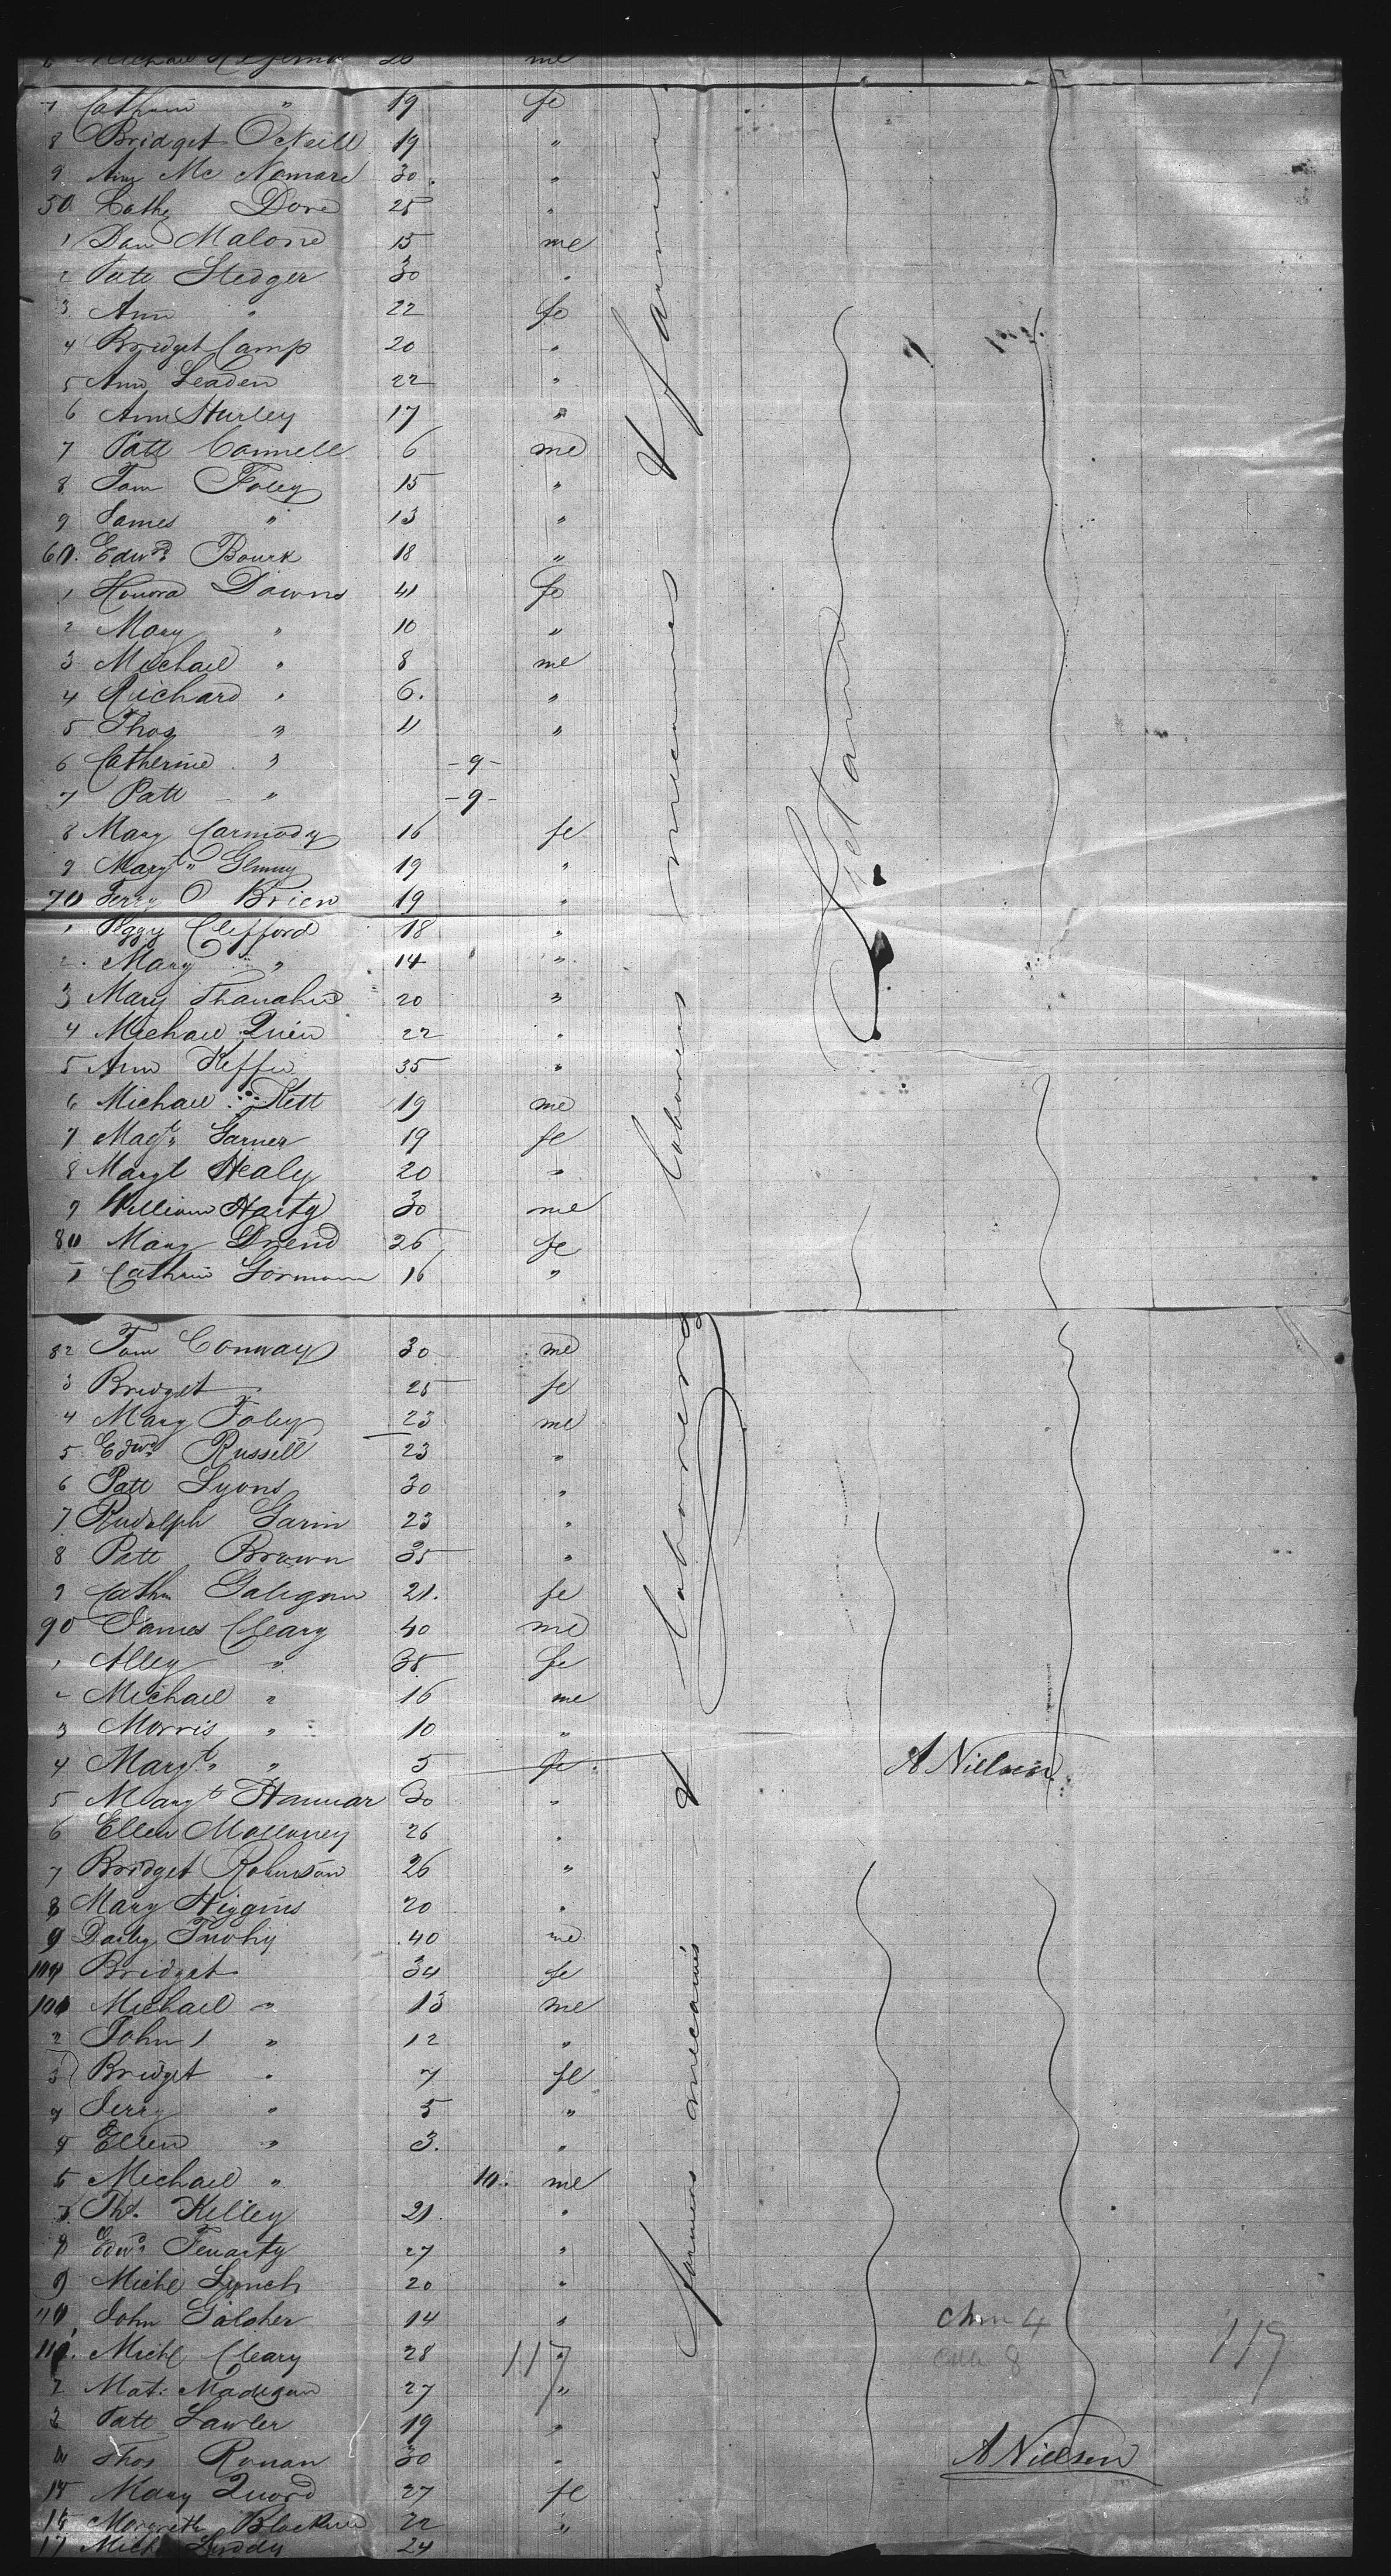 6 Michael 20 me
7 Cathrin " 19 fe
8 Bridget O Neill 19 "
9 Ann Mc Namara 30. "
50 Cathe Dore 25 "
1 Dan Malone 15 me
2 Patt Sledger 30 "
3 Ann " 22 fe
4 Bridget Camp 20 "
5 Ann Leaden 22 "
6 Ann Hurley 17 "
7 Patt Connell 6 me
8 Tom Foley 15 "
9 James " 13 "
60. Edwd. Bourk 18 "
1 Honora Downs 41 fe
2 Mary " 10 "
3 Michael " 8 me
4 Richard " 6. "
5 Thos " 11 "
6 Catherine " -9-
7 Patt " -9-
8 Mary Carmody 16 fe
9 Margt " 19 "
70 Terry O Brien 19 "
1 Peggy Clifford 18 "
2. Mary " 14 "
3 Mary Shanahan 20 "
4 Michael Quin 22 "
5 Ann Keffe 35 "
6 Michael Kett 19 me
7 Magt. Garner 19 fe
8 Margt Healy 20 "
9 William Harty 30 me
80 Mary 26 fe
1 Cathrin Gorman 16 "
82 Tom Conway 30 me
3 Bridget 25 fe
4 Mary Foley 23 me
5 Edwd. Russell 23 "
6 Patt Lyons 30 "
7 Rudolph Garin 23 "
8 Patt Brown 35 "
9 Cathn Galigan 21. fe
90 James Cleary 40 me
1 Alley " 35 fe
2 Michael " 16 me
3 Morris " 10 "
4 Margt. " 5 fe
5 Margt Hannar 30 "
6 Ellen Mallaney 26 "
7 Bridget Robinson 26 "
8 Mary Higgins 20 "
9 Darby Tuohy 40 me
100 Bridget 34 fe
101 Michael " 13 me
2 John " 12 "
3 Bridget " 7 fe
4 Jerry " 5 "
5 Ellen " 3. "
6 Michael " 10. me
7 Ths. Kelley 21 "
8 Edwd. Fenarty 27 "
9 Michl Lynch 20 "
110 John Galaher 14 "
111. Michl Cleary 28 "
2 Mat: Madigan 27 "
3 Patt Lawler 19 "
4 Thos Ronan 30 "
15 Mary 27 fe
16 Margreth 22 "
17 Michl Liddy 24
Labourers mecannics & farmers
Ireland
farmers mecannics & Labourers
A Nielsen
117
chn 4
8
117
A Nielsen